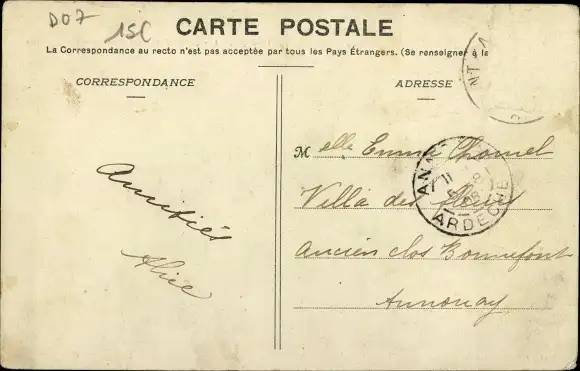 D07
15C
CARTE POSTALE
La Correspondance au recto n'est pas acceptée par tous les Pays Étrangers. (Se renseigner à la
CORRESPONDANCE
ADRESSE
Amitiés
Alice
Melle Emma Chomel
Villa des fleurs
Ancien clos Bonnefont
Annonay
ARDECHE